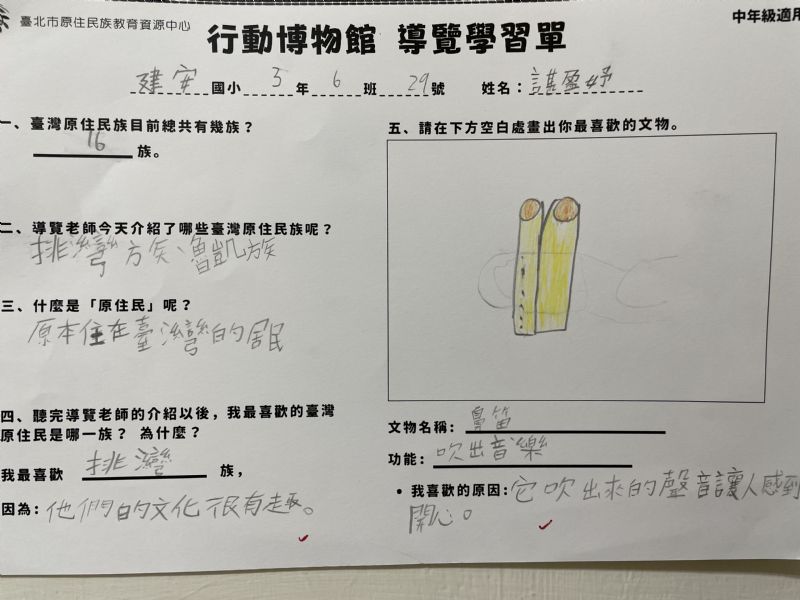 臺北市原住民族教育資源中心
中年級適用
行動博物館 導覽學習單
建安國小3年6班29號 姓名：諶盈妤
一、臺灣原住民族目前總共有幾族？
16族。
二、導覽老師今天介紹了哪些臺灣原住民族呢？
排灣族、魯凱族
三、什麼是「原住民」呢？
原本住在臺灣的居民
四、聽完導覽老師的介紹以後，我最喜歡的臺灣
原住民是哪一族？ 為什麼？
我最喜歡 排灣 族，
因為：他們的文化很有趣。
五、請在下方空白處畫出你最喜歡的文物。
文物名稱：鼻笛
功能：吹出音樂
• 我喜歡的原因：它吹出來的聲音讓人感到
開心。